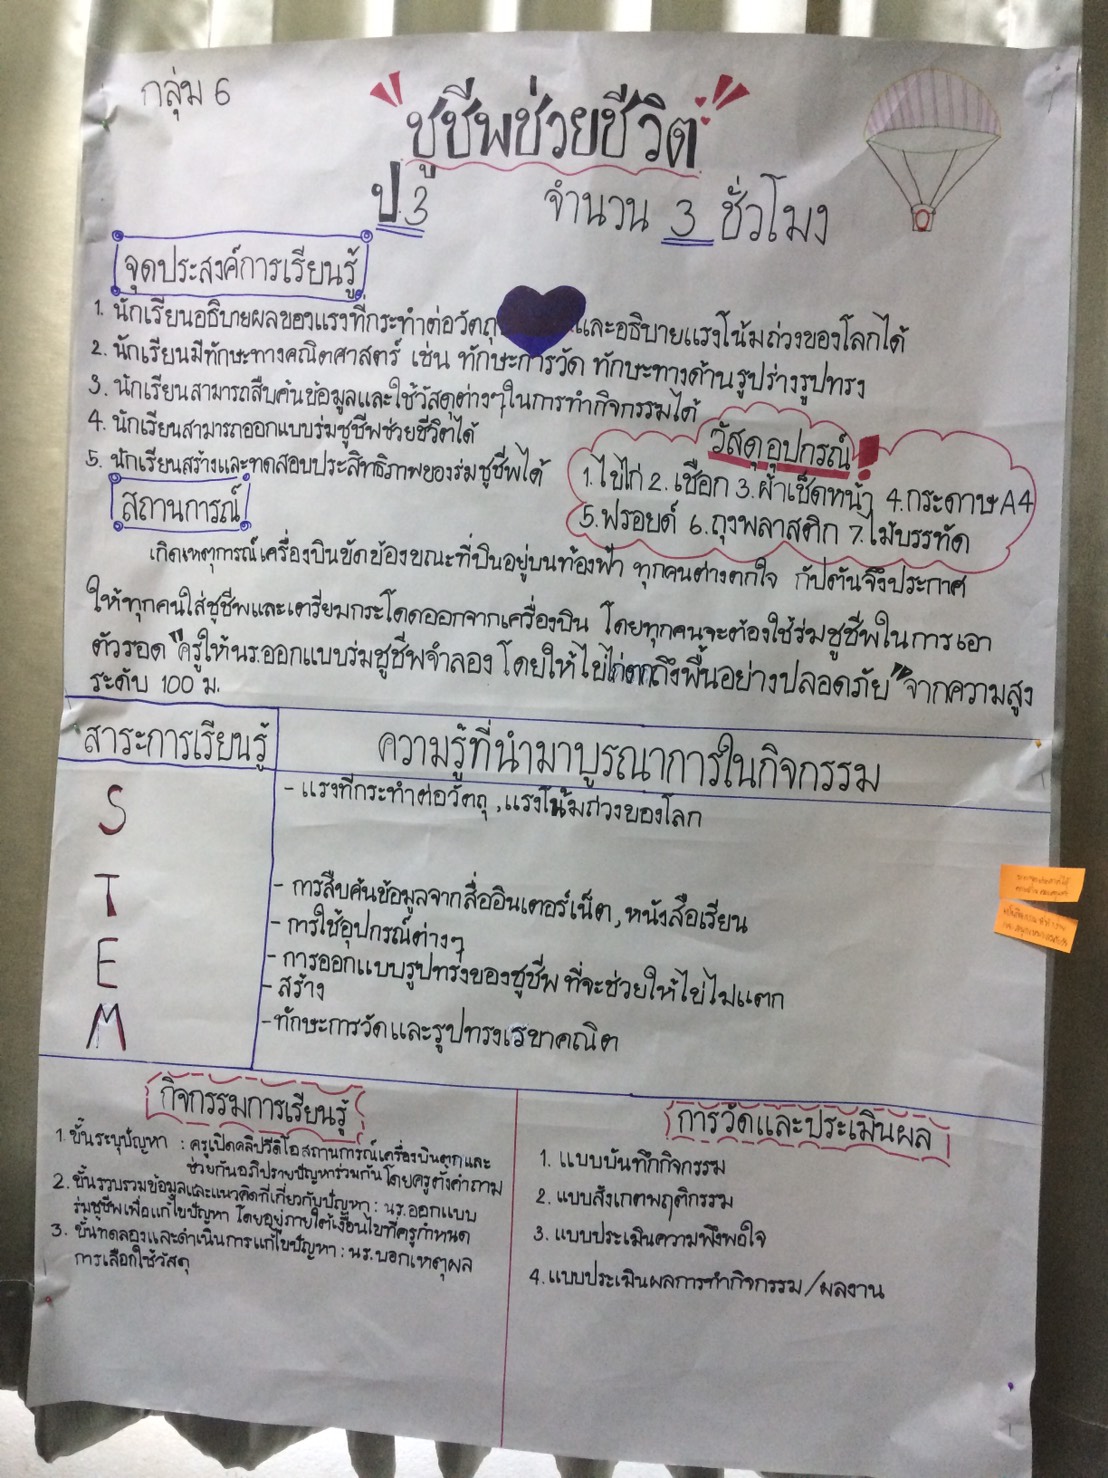 กลุ่ม 6
ชูชีพช่วยชีวิต
ป.3 จำนวน 3 ชั่วโมง
จุดประสงค์การเรียนรู้
1. นักเรียนอธิบายผลของแรงที่กระทำต่อวัตถุ และอธิบายแรงโน้มถ่วงของโลกได้
2. นักเรียนมีทักษะทางคณิตศาสตร์ เช่น ทักษะการวัด ทักษะทางด้านรูปร่างรูปทรง
3. นักเรียนสามารถสืบค้นข้อมูลและใช้วัสดุต่างๆในการทำกิจกรรมได้
4. นักเรียนสามารถออกแบบร่มชูชีพช่วยชีวิตได้
5. นักเรียนสร้างและทดสอบประสิทธิภาพของร่มชูชีพได้
วัสดุอุปกรณ์!
1.ไข่ไก่ 2.เชือก 3.ผ้าเช็ดหน้า 4.กระดาษ A4
5.ฟรอยด์ 6.ถุงพลาสติก 7.ไม้บรรทัด
สถานการณ์
เกิดเหตุการณ์เครื่องบินขัดข้องขณะที่บินอยู่บนท้องฟ้า ทุกคนต่างตกใจ กัปตันจึงประกาศ
ให้ทุกคนใส่ชูชีพและเตรียมกระโดดออกจากเครื่องบิน โดยทุกคนจะต้องใช้ร่มชูชีพในการเอา
ตัวรอด "ครูให้นร.ออกแบบร่มชูชีพจำลอง โดยให้ไข่ไก่ตกถึงพื้นอย่างปลอดภัย" จากความสูง
ระดับ 100 ม.
สาระการเรียนรู้ ความรู้ที่นำมาบูรณาการในกิจกรรม
S - แรงที่กระทำต่อวัตถุ, แรงโน้มถ่วงของโลก
T - การสืบค้นข้อมูลจากสื่ออินเตอร์เน็ต, หนังสือเรียน
- การใช้อุปกรณ์ต่างๆ
E - การออกแบบรูปทรงของชูชีพ ที่จะช่วยให้ไข่ไม่แตก
- สร้าง
M - ทักษะการวัดและรูปทรงเรขาคณิต
กิจกรรมการเรียนรู้
1. ขั้นระบุปัญหา : ครูเปิดคลิปวีดิโอสถานการณ์เครื่องบินตกและ
ช่วยกันอภิปรายปัญหาร่วมกันโดยครูตั้งคำถาม
2. ขั้นรวบรวมข้อมูลและแนวคิดที่เกี่ยวกับปัญหา : นร.ออกแบบ
ร่มชูชีพเพื่อแก้ไขปัญหา โดยอยู่ภายใต้เงื่อนไขที่ครูกำหนด
3. ขั้นทดลองและดำเนินการแก้ไขปัญหา : นร.บอกเหตุผล
การเลือกใช้วัสดุ
การวัดและประเมินผล
1. แบบบันทึกกิจกรรม
2. แบบสังเกตพฤติกรรม
3. แบบประเมินความพึงพอใจ
4. แบบประเมินผลการทำกิจกรรม/ผลงาน